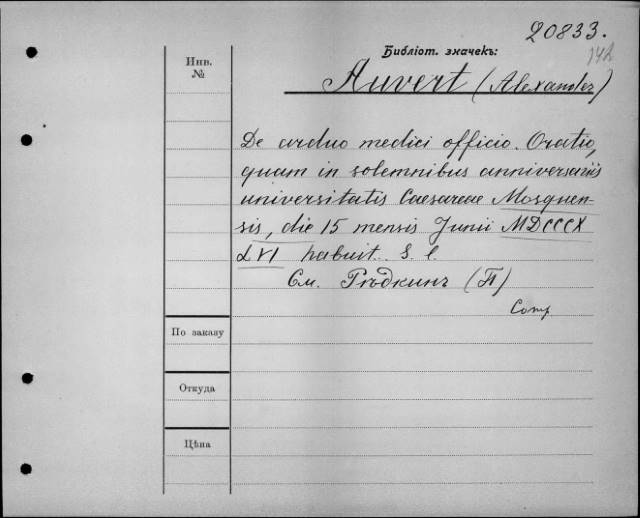 20833.
142
Библіот. значекъ:
Инв.
№
Auvert (Alexander)
De arduo medici officio. Oratio,
quam in solemnibus anniversariis
universitatis Caesareae Mosquen-
sis, die 15 mensis Junii MDCCCX
LVI habuit. S. l.
См. Рѣдкинъ (П)
Comp
По заказу
Откуда
Цѣна